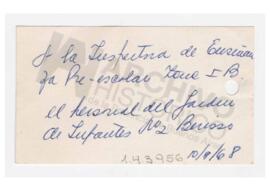 A la Inspectora de Enseñan
za Pre-escolar Zona I B.
el personal del Jardín
de Infantes Nº2 Berisso
143956 10/9/68
ARCHIVO
HISTÓRICO